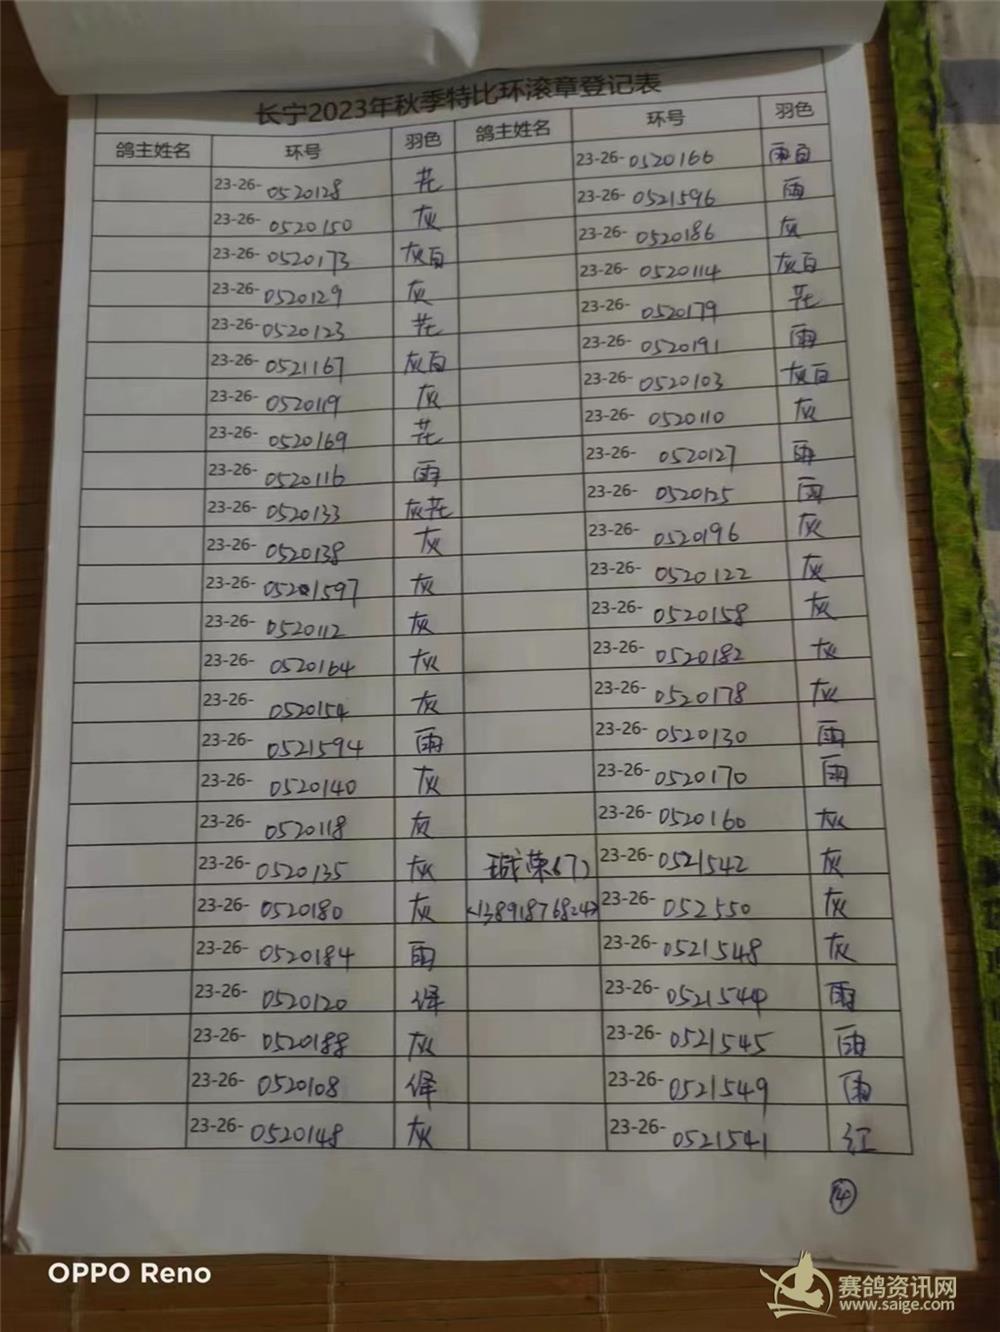 长宁2023年秋季特比环滚章登记表
鸽主姓名 环号 羽色 鸽主姓名 环号 羽色
23-26-0520128 花 23-26-0520166 雨白
23-26-0520150 灰 23-26-0521596 雨
23-26-0520173 灰白 23-26-0520186 灰
23-26-0520129 灰 23-26-0520114 灰白
23-26-0520123 花 23-26-0520179 花
23-26-0521167 灰白 23-26-0520191 雨
23-26-0520119 灰 23-26-0520103 灰白
23-26-0520169 花 23-26-0520110 灰
23-26-0520116 雨 23-26-0520127 雨
23-26-0520133 灰花 23-26-0520125 雨
23-26-0520138 灰 23-26-0520196 灰
23-26-05201597 灰 23-26-0520122 灰
23-26-0520112 灰 23-26-0520158 灰
23-26-0520164 灰 23-26-0520182 灰
23-26-0520154 灰 23-26-0520178 灰
23-26-0521594 雨 23-26-0520130 雨
23-26-0520140 灰 23-26-0520170 雨
23-26-0520118 灰 23-26-0520160 灰
23-26-0520135 灰 荣(7) 23-26-0521542 灰
23-26-0520180 灰 <13891876824> 23-26-052550 灰
23-26-0520184 雨 23-26-0521548 灰
23-26-0520120 绛 23-26-0521544 雨
23-26-0520188 灰 23-26-0521545 雨
23-26-0520108 绛 23-26-0521549 雨
23-26-0520148 灰 23-26-0521541 红
④
OPPO Reno
赛鸽资讯网
www.saige.com